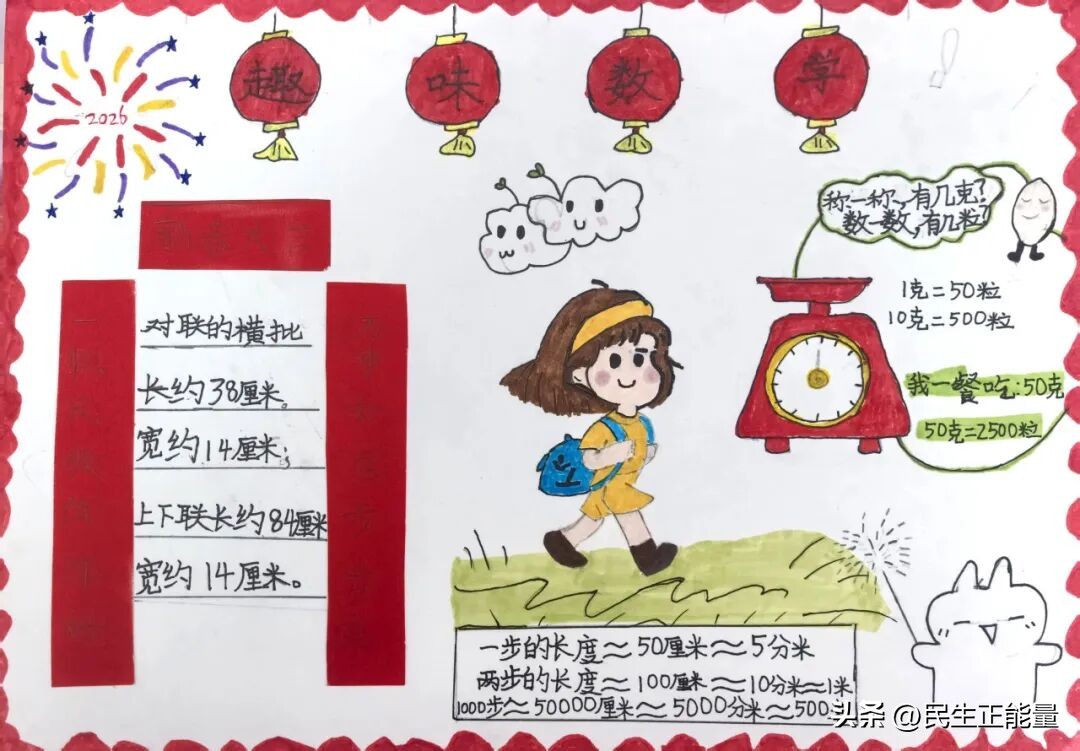 趣味数学
2026
对联的横批
长约38厘米。
宽约14厘米;
上下联长约84厘米
宽约14厘米。
称一称,有几克?
数一数,有几粒?
1克=50粒
10克=500粒
我一餐吃:50克
50克=2500粒
一步的长度≈50厘米≈5分米
两步的长度≈100厘米≈10分米≈1米
1000步≈50000厘米≈5000分米≈500
头条 @民生正能量